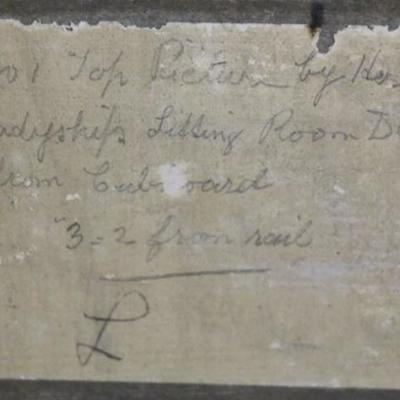 No 1 Top Picture by
Ladyship's Sitting Room
from Cubboard
3=2 from rail
L